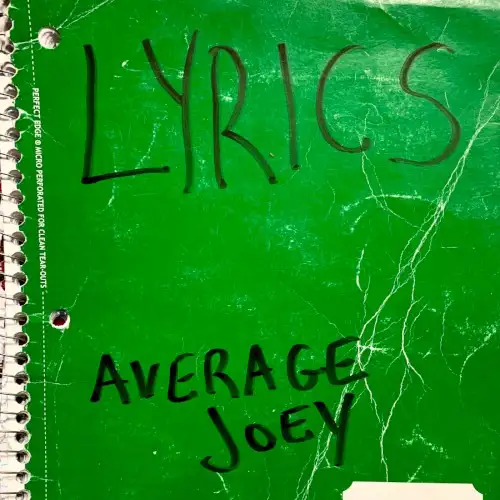 LYRICS
PERFECT EDGE ® MICRO PERFORATED FOR CLEAN TEAR-OUTS
AVERAGE
JOEY